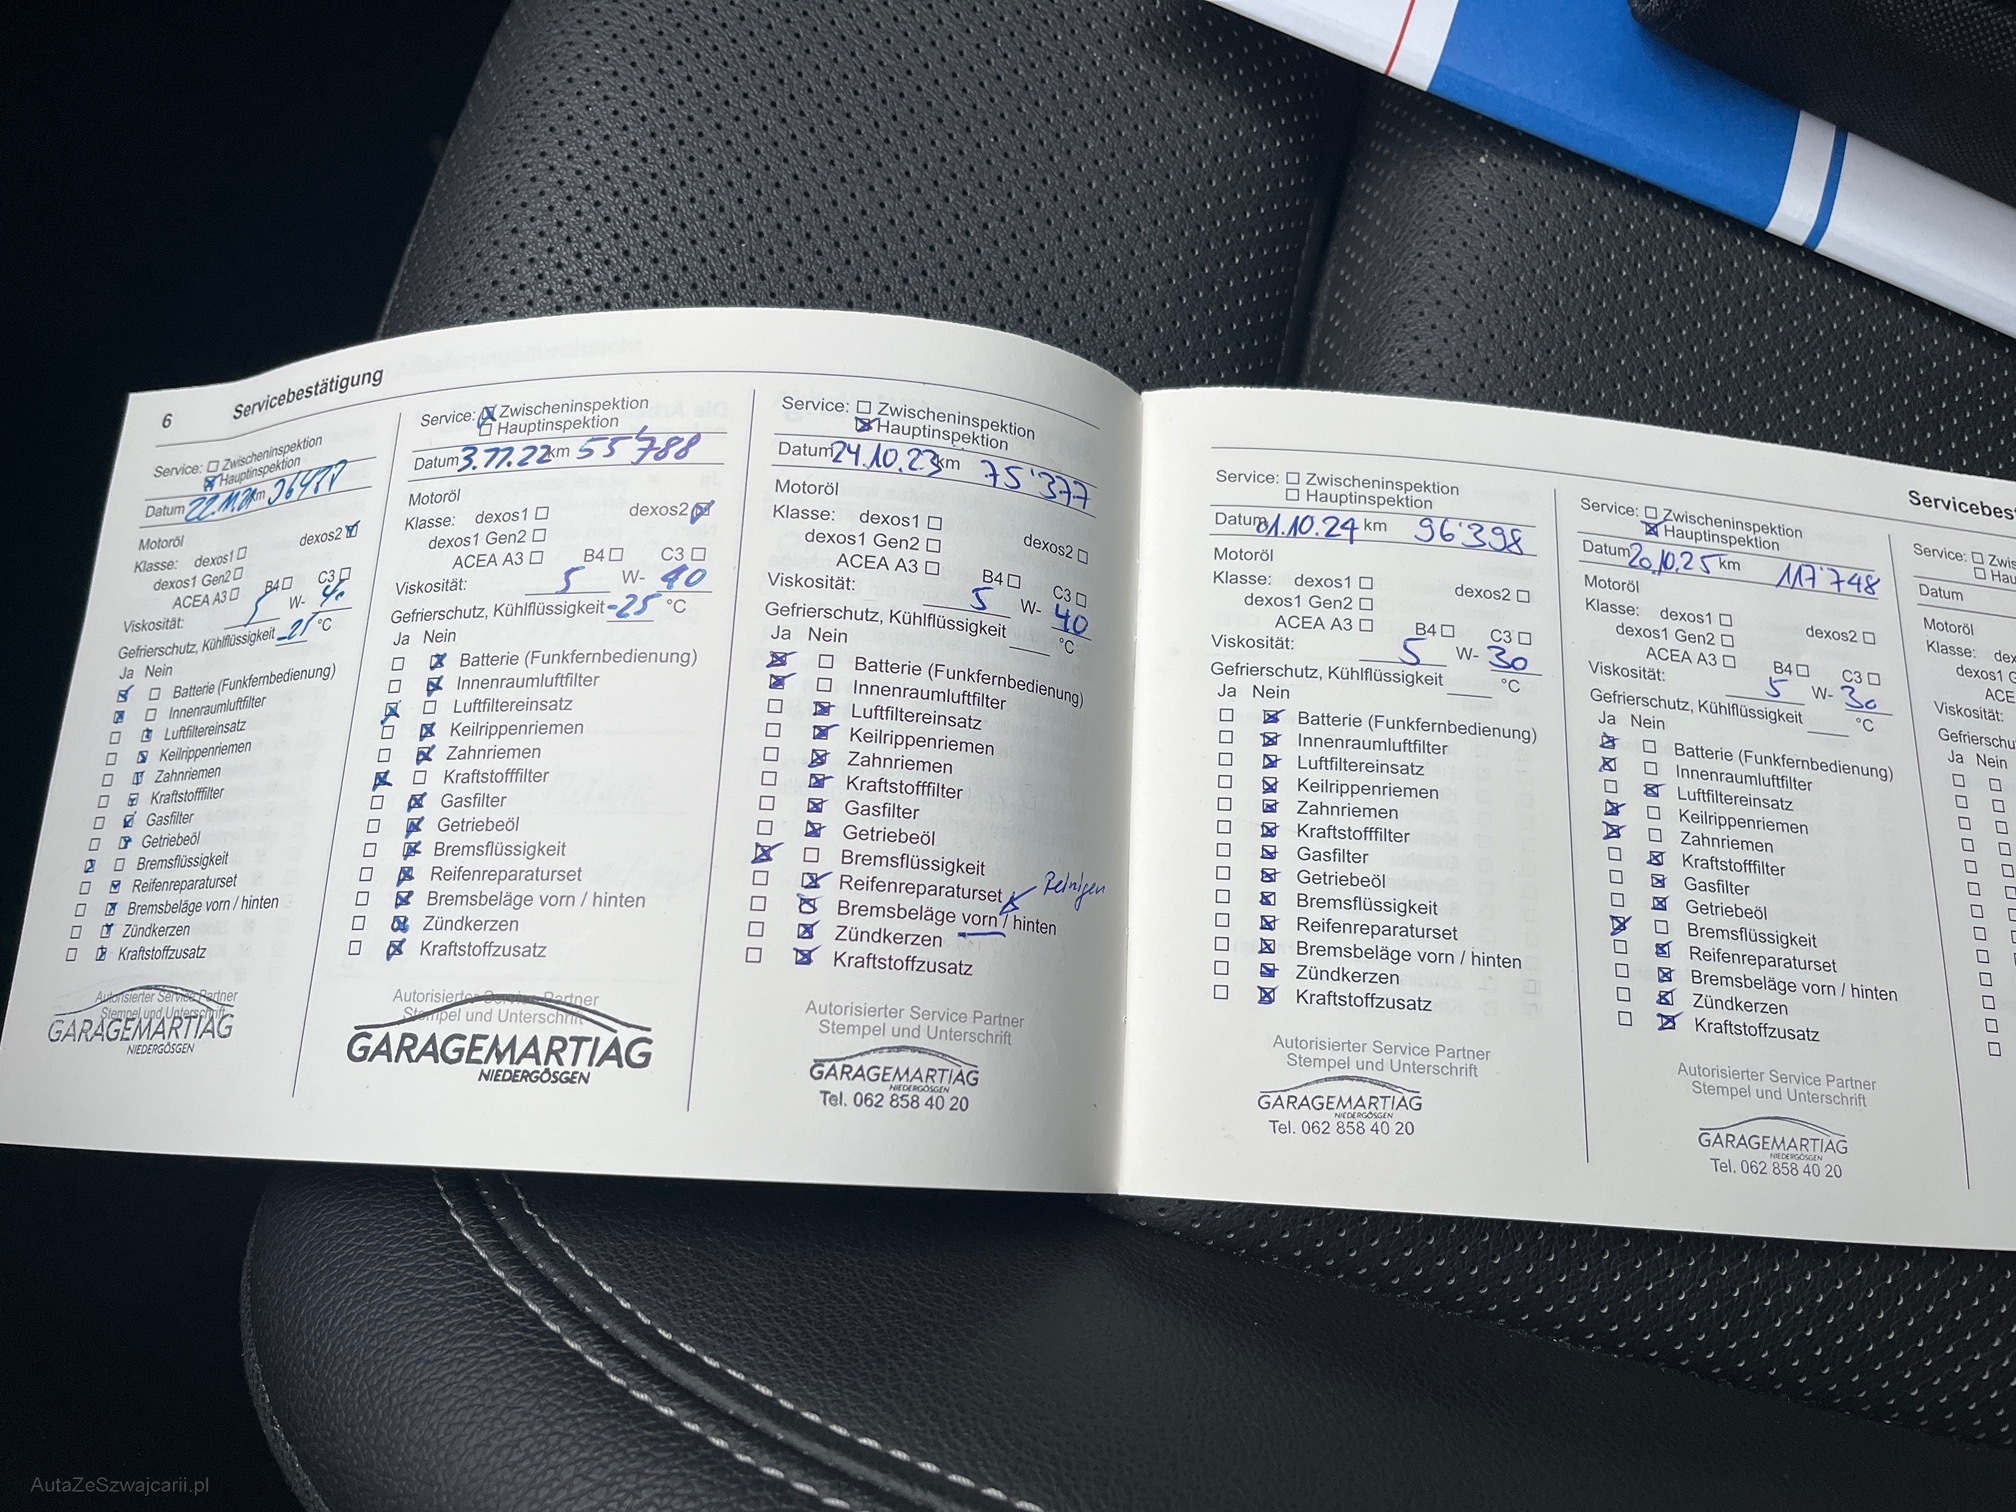 6
Servicebestätigung
Service: ☐ Zwischeninspektion
☒ Hauptinspektion
Datum 22.11.21 km
Motoröl
Klasse: dexos1 ☐ dexos2 ☒
dexos1 Gen2 ☐
ACEA A3 ☐ B4 ☐ C3 ☐
Viskosität: 5 W- 40
Gefrierschutz, Kühlflüssigkeit -25 °C
Ja Nein
☒ ☐ Batterie (Funkfernbedienung)
☒ ☐ Innenraumluftfilter
☐ ☒ Luftfiltereinsatz
☐ ☒ Keilrippenriemen
☐ ☒ Zahnriemen
☐ ☒ Kraftstofffilter
☐ ☒ Gasfilter
☐ ☒ Getriebeöl
☒ ☐ Bremsflüssigkeit
☐ ☒ Reifenreparaturset
☐ ☒ Bremsbeläge vorn / hinten
☐ ☒ Zündkerzen
☐ ☒ Kraftstoffzusatz
Autorisierter Service Partner
Stempel und Unterschrift
GARAGEMARTIAG
NIEDERGÖSGEN
Service: ☒ Zwischeninspektion
☐ Hauptinspektion
Datum 3.11.22 km 55'788
Motoröl
Klasse: dexos1 ☐ dexos2 ☒
dexos1 Gen2 ☐
ACEA A3 ☐ B4 ☐ C3 ☐
Viskosität: 5 W- 40
Gefrierschutz, Kühlflüssigkeit -25 °C
Ja Nein
☐ ☒ Batterie (Funkfernbedienung)
☐ ☒ Innenraumluftfilter
☒ ☐ Luftfiltereinsatz
☐ ☒ Keilrippenriemen
☐ ☒ Zahnriemen
☒ ☐ Kraftstofffilter
☐ ☒ Gasfilter
☐ ☒ Getriebeöl
☐ ☒ Bremsflüssigkeit
☐ ☒ Reifenreparaturset
☐ ☒ Bremsbeläge vorn / hinten
☐ ☒ Zündkerzen
☐ ☒ Kraftstoffzusatz
Autorisierter Service Partner
Stempel und Unterschrift
GARAGEMARTIAG
NIEDERGÖSGEN
Service: ☐ Zwischeninspektion
☒ Hauptinspektion
Datum 24.10.23 km 75'377
Motoröl
Klasse: dexos1 ☐ dexos2 ☐
dexos1 Gen2 ☐
ACEA A3 ☐ B4 ☐ C3 ☐
Viskosität: 5 W- 40
Gefrierschutz, Kühlflüssigkeit °C
Ja Nein
☒ ☐ Batterie (Funkfernbedienung)
☒ ☐ Innenraumluftfilter
☐ ☒ Luftfiltereinsatz
☐ ☒ Keilrippenriemen
☐ ☒ Zahnriemen
☐ ☒ Kraftstofffilter
☐ ☒ Gasfilter
☐ ☒ Getriebeöl
☒ ☐ Bremsflüssigkeit
☐ ☒ Reifenreparaturset Reinigen
☐ ☒ Bremsbeläge vorn / hinten
☐ ☒ Zündkerzen
☐ ☒ Kraftstoffzusatz
Autorisierter Service Partner
Stempel und Unterschrift
GARAGEMARTIAG
NIEDERGÖSGEN
Tel. 062 858 40 20
Service: ☐ Zwischeninspektion
☐ Hauptinspektion
Datum 01.10.24 km 96'398
Motoröl
Klasse: dexos1 ☐ dexos2 ☐
dexos1 Gen2 ☐
ACEA A3 ☐ B4 ☐ C3 ☐
Viskosität: 5 W- 30
Gefrierschutz, Kühlflüssigkeit °C
Ja Nein
☐ ☒ Batterie (Funkfernbedienung)
☐ ☒ Innenraumluftfilter
☐ ☒ Luftfiltereinsatz
☐ ☒ Keilrippenriemen
☐ ☒ Zahnriemen
☐ ☒ Kraftstofffilter
☐ ☒ Gasfilter
☐ ☒ Getriebeöl
☐ ☒ Bremsflüssigkeit
☐ ☒ Reifenreparaturset
☐ ☒ Bremsbeläge vorn / hinten
☐ ☒ Zündkerzen
☐ ☒ Kraftstoffzusatz
Autorisierter Service Partner
Stempel und Unterschrift
GARAGEMARTIAG
NIEDERGÖSGEN
Tel. 062 858 40 20
Service: ☐ Zwischeninspektion
☒ Hauptinspektion
Datum 20.10.25 km 117'748
Motoröl
Klasse: dexos1 ☐ dexos2 ☐
dexos1 Gen2 ☐
ACEA A3 ☐ B4 ☐ C3 ☐
Viskosität: 5 W- 30
Gefrierschutz, Kühlflüssigkeit °C
Ja Nein
☒ ☐ Batterie (Funkfernbedienung)
☒ ☐ Innenraumluftfilter
☐ ☒ Luftfiltereinsatz
☒ ☐ Keilrippenriemen
☒ ☐ Zahnriemen
☐ ☒ Kraftstofffilter
☐ ☒ Gasfilter
☐ ☒ Getriebeöl
☒ ☐ Bremsflüssigkeit
☐ ☒ Reifenreparaturset
☐ ☒ Bremsbeläge vorn / hinten
☐ ☒ Zündkerzen
☐ ☒ Kraftstoffzusatz
Autorisierter Service Partner
Stempel und Unterschrift
GARAGEMARTIAG
NIEDERGÖSGEN
Tel. 062 858 40 20
Servicebest
Service: ☐ Zwis
☐ Hau
Datum
Motoröl
Klasse: dex
dexos1 G
ACE
Viskosität:
Gefrierschu
Ja Nein
AutaZeSzwajcarii.pl